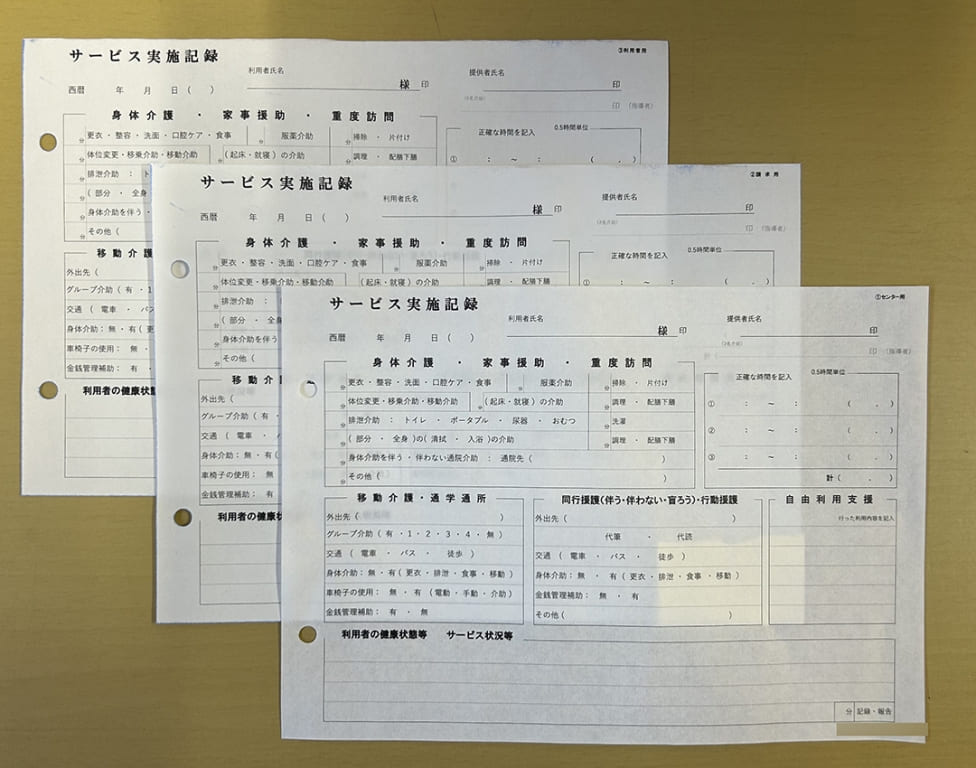 サービス実施記録
③利用者用
利用者氏名
様 印
提供者氏名
印
西暦 年 月 日 ( )
印 (指導者)
身体介護 ・ 家事援助 ・ 重度訪問
分 更衣・整容・洗面・口腔ケア・食事 分 服薬介助 分 掃除 ・ 片付け
分 体位変更・移乗介助・移動介助 分 (起床・就寝)の介助 分 調理 ・ 配膳下膳
正確な時間を記入 0.5時間単位
① : ～ : ( . )
分 排泄介助 : ト
分 ( 部分 ・ 全身
分 身体介助を伴う・
分 その他 (
移動介護
外出先 (
グループ介助 ( 有 ・1
交通 ( 電車 ・ バス
身体介助: 無 ・有( 更
車椅子の使用: 無 ・
金銭管理補助: 有 ・
利用者の健康状態
サービス実施記録
②請求用
利用者氏名
様 印
提供者氏名
印
西暦 年 月 日 ( )
印 (指導者)
身体介護 ・ 家事援助 ・ 重度訪問
分 更衣・整容・洗面・口腔ケア・食事 分 服薬介助 分 掃除 ・ 片付け
分 体位変更・移乗介助・移動介助 分 (起床・就寝)の介助 調理 ・ 配膳下膳
正確な時間を記入 0.5時間単位
① : ～ : ( . )
分 排泄介助 :
分 ( 部分 ・ 全身
分 身体介助を伴う
分 その他 (
移動介
外出先 (
グループ介助 ( 有 ・
交通 ( 電車 ・
身体介助: 無 ・有(
車椅子の使用: 無
金銭管理補助: 有
利用者の健康状
サービス実施記録
①センター用
利用者氏名
様 印
提供者氏名
印
西暦 年 月 日 ( )
印 (指導者)
身体介護 ・ 家事援助 ・ 重度訪問
分 更衣・整容・洗面・口腔ケア・食事 分 服薬介助 分 掃除 ・ 片付け
分 体位変更・移乗介助・移動介助 分 (起床・就寝)の介助 分 調理 ・ 配膳下膳
分 排泄介助 : トイレ ・ ポータブル ・ 尿器 ・ おむつ 分 洗濯
分 ( 部分 ・ 全身 )の( 清拭 ・ 入浴 )の介助 分 調理 ・ 配膳下膳
分 身体介助を伴う・伴わない通院介助 : 通院先 ( )
分 その他 ( )
正確な時間を記入 0.5時間単位
① : ～ : ( . )
② : ～ : ( . )
③ : ～ : ( . )
計 ( . )
移動介護・通学通所
外出先 ( )
グループ介助 ( 有 ・1・2・3・4・ 無 )
交通 ( 電車 ・ バス ・ 徒歩 )
身体介助: 無 ・有( 更衣・排泄・食事・移動 )
車椅子の使用: 無 ・ 有 (電動・手動・介助)
金銭管理補助: 有 ・ 無
同行援護(伴う・伴わない・盲ろう)・行動援護
外出先 ( )
代筆 ・ 代読
交通 ( 電車 ・ バス ・ 徒歩 )
身体介助: 無 ・ 有 ( 更衣・排泄・食事・移動 )
金銭管理補助: 無 ・ 有
その他 ( )
自由利用支援
行った利用内容を記入
利用者の健康状態等 サービス状況等
分 記録・報告